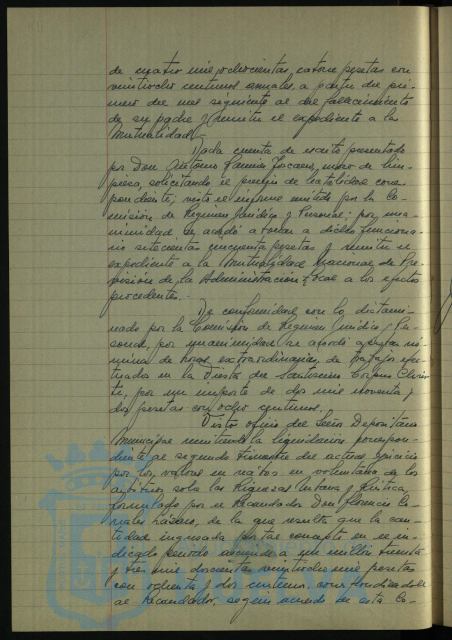 de cuatro mil ochocientas catorce pesetas con
veintiocho centimos anuales, a partir del pri-
mero del mes siguiente al del fallecimiento
de su padre y remitir el expediente a la
Mutualidad.-
Dada cuenta de escrito presentado
por Don Antonio, mozo de lim-
pieza, solicitando el premio de natalidad corres-
pondiente; visto el informe emitido por la Co-
misión de Régimen Jurídico y Personal; por una-
nimidad se acordó abonar a dicho funciona-
rio setecientas cincuenta pesetas y remitir el
expediente a la Mutualidad Nacional de Pre-
visión de la Administración Local a los efectos
procedentes.-
De conformidad con lo dictami-
nado por la Comisión de Régimen Jurídico y Per-
sonal, por unanimidad se acordó aprobar nó-
mina de horas extraordinarias de trabajo efec-
tuadas en la Fiesta del Santísimo Corpus Chris-
ti, por un importe de dos mil noventa y
dos pesetas con ocho centimos.
Visto oficio del Señor Depositario
Municipal remitiendo la liquidación correspon-
diente al segundo trimestre del actual ejercicio
por los valores en recibo en voluntaria de los
arbitrios sobre las Riquezas Urbana y Rústica,
formulado por el Recaudador Don Florencio
de la que resulta que la can-
tidad ingresada por tal concepto en el in-
dicado periodo asciende a un millón treinta
y tres mil doscientas veintiocho mil pesetas
con ochenta y dos centimos,
al Recaudador, según acuerdo de esta Co-